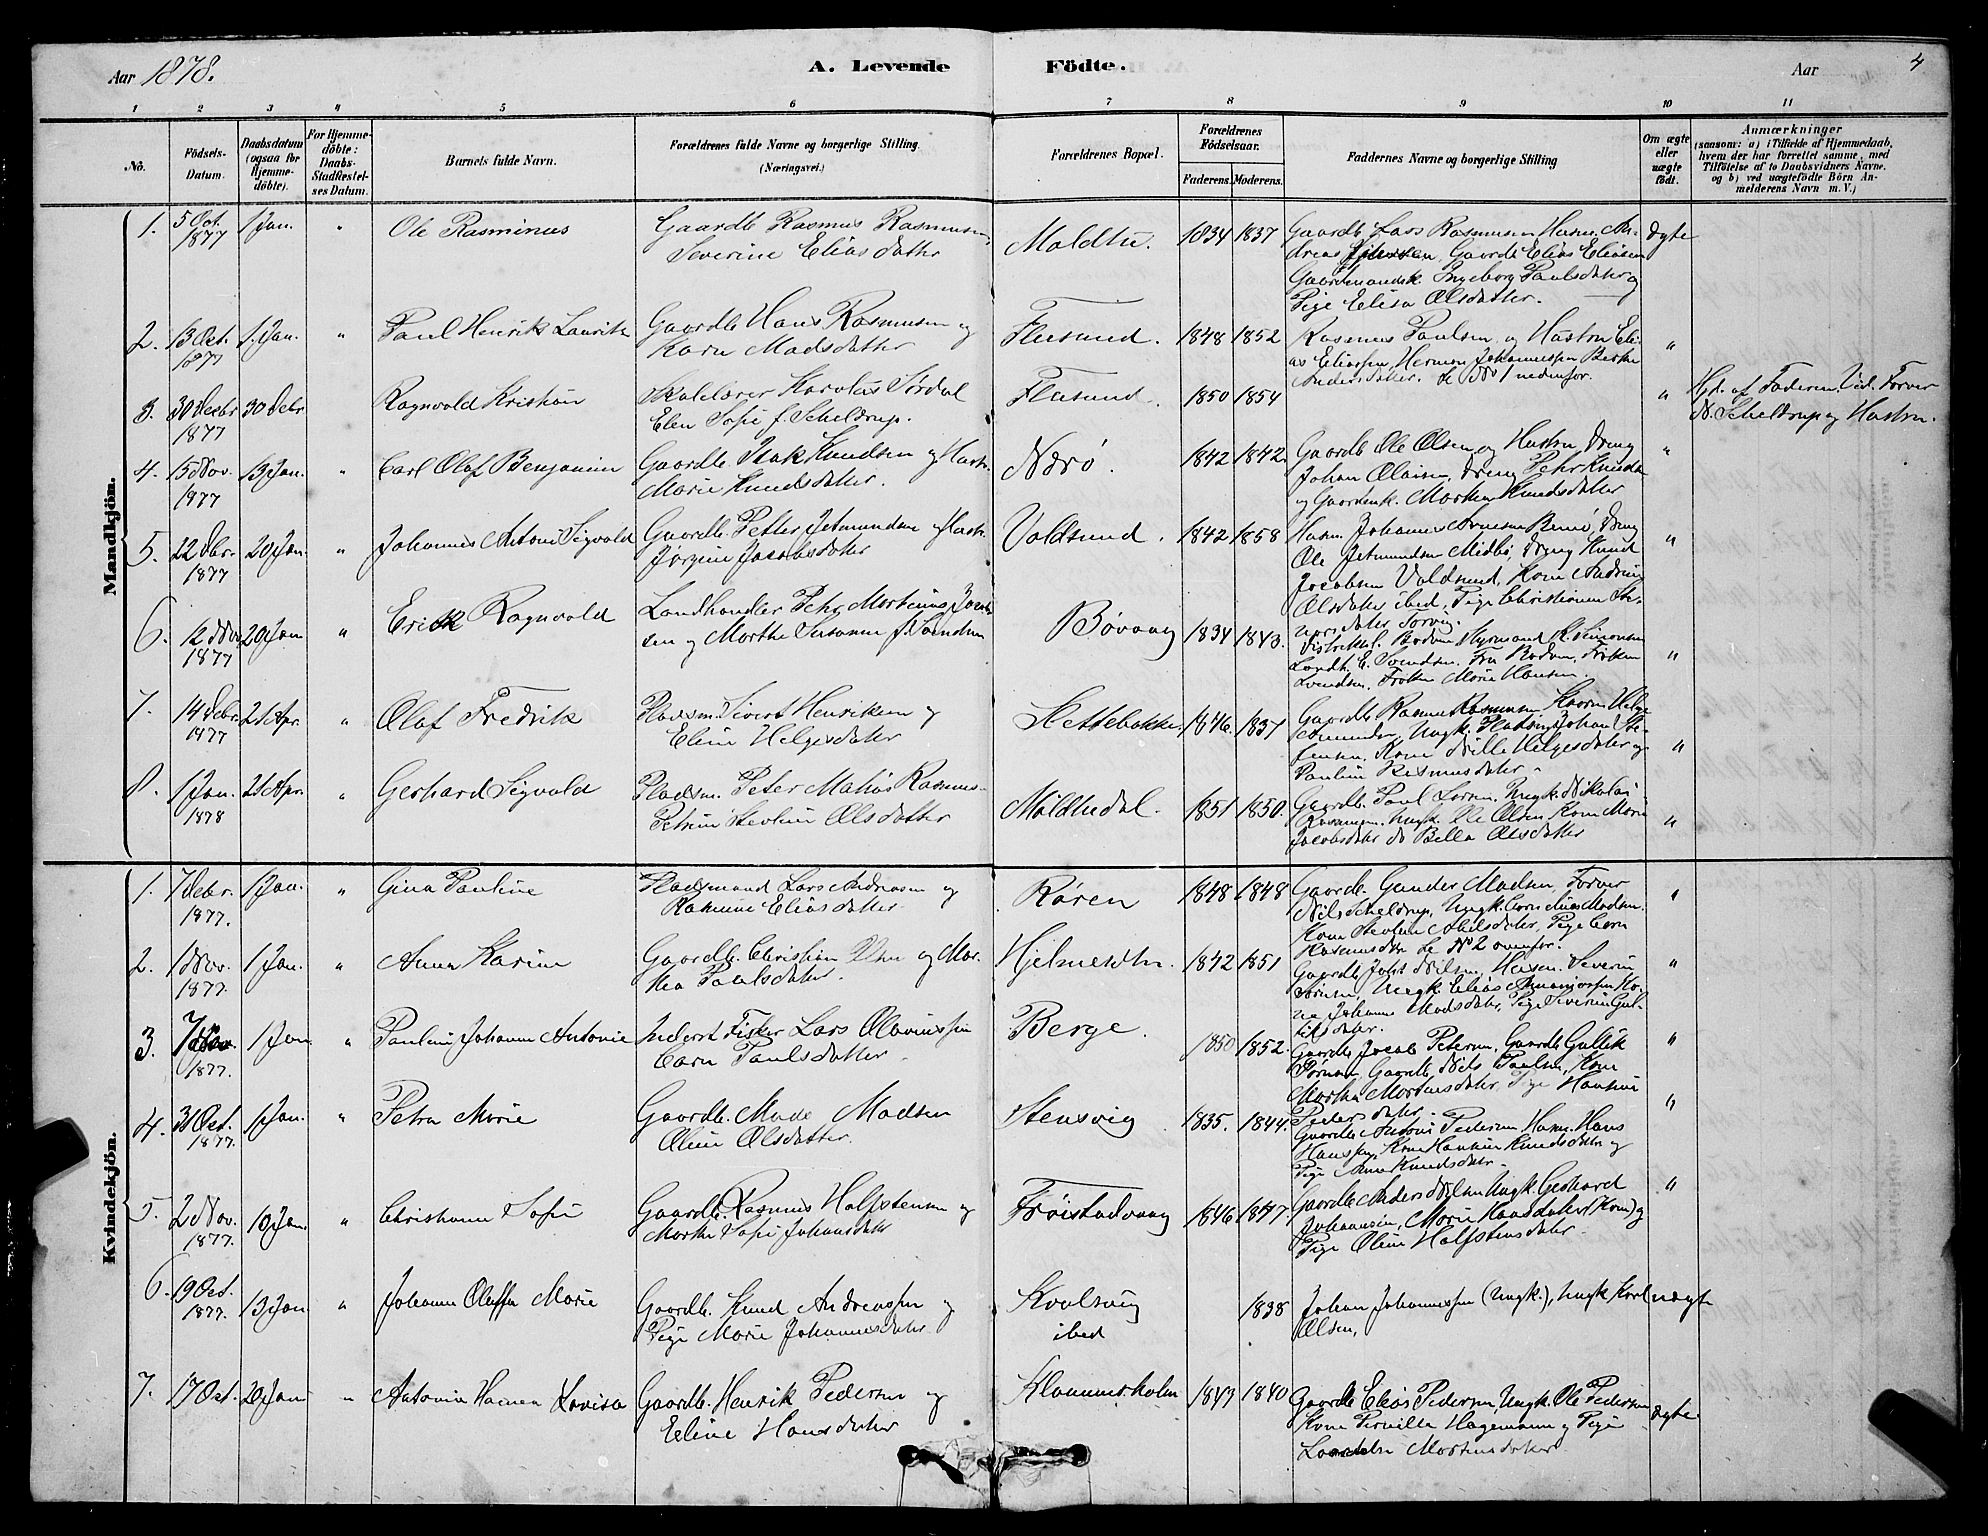 Aar 1878.
A. Levende Födte.
Aar
4
1 2 3 4 5 6 7 8 9 10 11
No.
Födsels-Datum.
Daabsdatum (ogsaa for Hjemme-döbte).
For Hjemme-döbte: Daabs-Stadfæstel-ses Datum.
Barnets fulde Navn.
Forældrenes fulde Navne og borgerlige Stilling (Næringsvei.)
Forældrenes Bopæl.
Forældrenes Födselsaar.
Faderens. Moderens.
Faddernes Navne og borgerlige Stilling
Om ægte eller uægte födt.
Anmærkninger
(saasom: a) i Tilfælde af Hjemmedaab, hvem der har forrettet samme, med Tilföielse af to Daabsvidners Navne, og b) ved uægtefödte Börn An-melderens Navn m. V.)
Mandkjön.
1. 5 Oct. 1877 1 Jan. " Ole Rasminus
Gaardb Rasmus Rasmusen
Severine Eliasdatter
1834 1837
Gaardb Lars Rasmusen Husm. An-
dreas Gaardb Elias Eliasen
Gaardmandsk. Ingeborg Paulsdatter og
Pige Elisa Olsdatter.
Ægte
2. 13 Oct. 1877 1 Jan. " Paul Henrik Laurits
Gaardb Hans Rasmusen og
Karn Madsdatter
Flusund. 1848 1852
Rasmus Paulsen og Hustru Eli-
as Eliassen, Herman Johannessen Berthe
Andersdatter. Se No 1 nedenfor.
"
3. 30 Decbr 1877 30 Debr. Ragnvald Kristian
Skolelærer Karolus Sørdal
Elen Sofie f. Scheldrup.
Flusund. 1850 1854
"
Hjd. af Faderen Vid. Forver
N. Scheldrup og Hustru.
4. 15 Nov. 1877 13 Jan. " Carl Olaf Benjamin
Gaardb. Isak Knudsen og Hustr.
Marie Knudsdatter.
Nærø. 1842 1842
Gaardb Ole Olsen og Hustru Dreng
Johan Olaisen, Dreng Pehr Knudsen
og Gaardmk. Marthe Knudsdatter
"
5. 22 Dbr. 1877 20 Jan. " Johannes Anton Sigvald
Gaardb. Petter Jetmundsen og Hustr.
Jørgine Jacobsdatter
Valdsund. 1842 1858
Husm. Johannes Arnesen Dreng
Ole Jetmundsen Midbø, Dreng Knud
Jacobsen Valdsund, Kone Andrine
Olsdatter ibid, Pige Christianen
"
6. 12 Nov 1877 20 Jan " Erick Ragnvald
Landhandler Pehr Morthinus Jacob-
sen og Marthe Susanne f. Svendsen
Bøvaag 1834 1843.
Landh. E. Svendsen. Fru Frøken
Svendsen. Frøken Marie Hansen.
"
7. 14 Debr. 1877 21 Apr. " Olaf Fredrik
Pladsm. Sivert Henriksen og
Eline Helgesdatter
Slettebakke 1846. 1837
Gaardb Rasmus Rasmusen
Kone Nille Helgesdatter og
Pauline Rasmusdatter.
"
8. 1 Jan. 1878 21 Apr. " Gerhard Sigvald
Pladsm. Peter Matias Rasmus-
Petrine Olsdatter
1851 1850.
Gaardb. Paul Larsen. Ungk. Nikolai
Rasmusen. Ungk. Ole Olsen, Kone Marie
Jacobsdatter do Bella Olsdatter
"
Kvindekjön.
1. 7 Debr. 1877. 1 Jan. " Gina Pauline
Pladsmand Lars Andreasen og
Rasmine Eliasdatter
Røren 1848 1848
Gaardb. Gunder Madsen, Forver
Nils Scheldrup, Ungk. Cornelius Madsen.
Rasmusdtr Se No 2 ovenfor.
"
2. 1 Nov. 1877. 1 Jan. " Anna Karine
Gaardb. Christian Olsen og Mar-
tha Paulsdatter.
1842 1851
Ungk. Elias
Johanne Madsdatter, Pige Severine Gul-
liksdatter.
"
3. 7 Nov. 1877. 1 Jan " Pauline Johanne Antonie
Inderst Fisker Lars Olavinssen
Carn Paulsdatter.
Berge. 1850 1852.
Gaardb. Jacob Petersen, Gaardb Gullik
Gaardb Nils Paulsen, Kone
Martha Mortensdatter, Pige Hansine
Pedersdatter.
"
4. 31 Oct. 1877. 1 Jan. " Petra Marie
Gaardb. Mads Madsen
Oline Olsdatter.
Stensvig 1835. 1844.
Gaardb Antoni Pedersen Husm. Hans
Hanssen, Kone Hansine Knudsdatter og
Pige Anne Knudsdatter.
"
5. 2 Nov. 1877. 10 Jan. " Christianne Sofie
Gaardb. Rasmus Halfstensen og
Marthe Sofie Johansdatt
Frøistadvaag 1846 1847.
Gaardb Anders Nilsen Ungk. Gerhard
Johansen, Marie Hansdatter (Kone) og
Pige Oline Halfstensdatter.
"
6. 19 Oct. 1877. 13 Jan. " Johanne Oluffa Marie
Gaardb. Knud Andreassen og
Pige Marie Johannesdatter
Kvalsvig
ibid
1838
Johan Johannessen (Ungk.), Ungk Karl
Olsen,
uægte
7. 17 Oct. 20 Jan " Antonie Lovisa
Gaardb. Henrik Pedersen og
Eline Hansdatter
1847 1840
Gaardb Elias Pedersen Ungk. Ole Pedersen
Kone Pernilla Hagemann og Pige
Mortensdatter
ægte